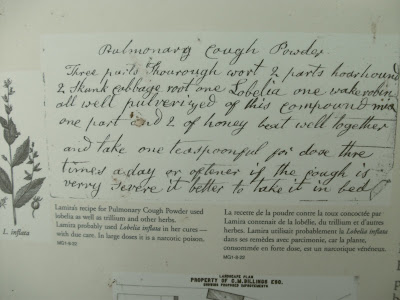 Pulmonary Cough Powder
Three parts Thourough wort 2 parts hoarhound
2 Skunk cabbage root one Lobelia one wakerobin
all well pulverized of this compound mix
one part and 2 of honey beat well together
and take one teaspoonful for dose thre
times a day or oftener if the cough is
verry Severe it better to take it in bed
L. inflata
Lamira's recipe for Pulmonary Cough Powder used
lobelia as well as trillium and other herbs.
Lamira probably used Lobelia inflata in her cures —
with due care. In large doses it is a narcotic poison.
MG1-8-20
La recette de la poudre contre la toux concoctée par
Lamira contenait de la lobélie, du trillium et d'autres
herbes. Lamira utilisait probablement la Lobelia inflata
dans ses remèdes avec parcimonie, car la plante,
consommée en forte dose, est un narcotique vénéneux.
MG1-8-20
LANDSCAPE PLAN
PROPERTY OF C.M. DILLINGS ESQ.
SHOWING PROPOSED IMPROVEMENTS